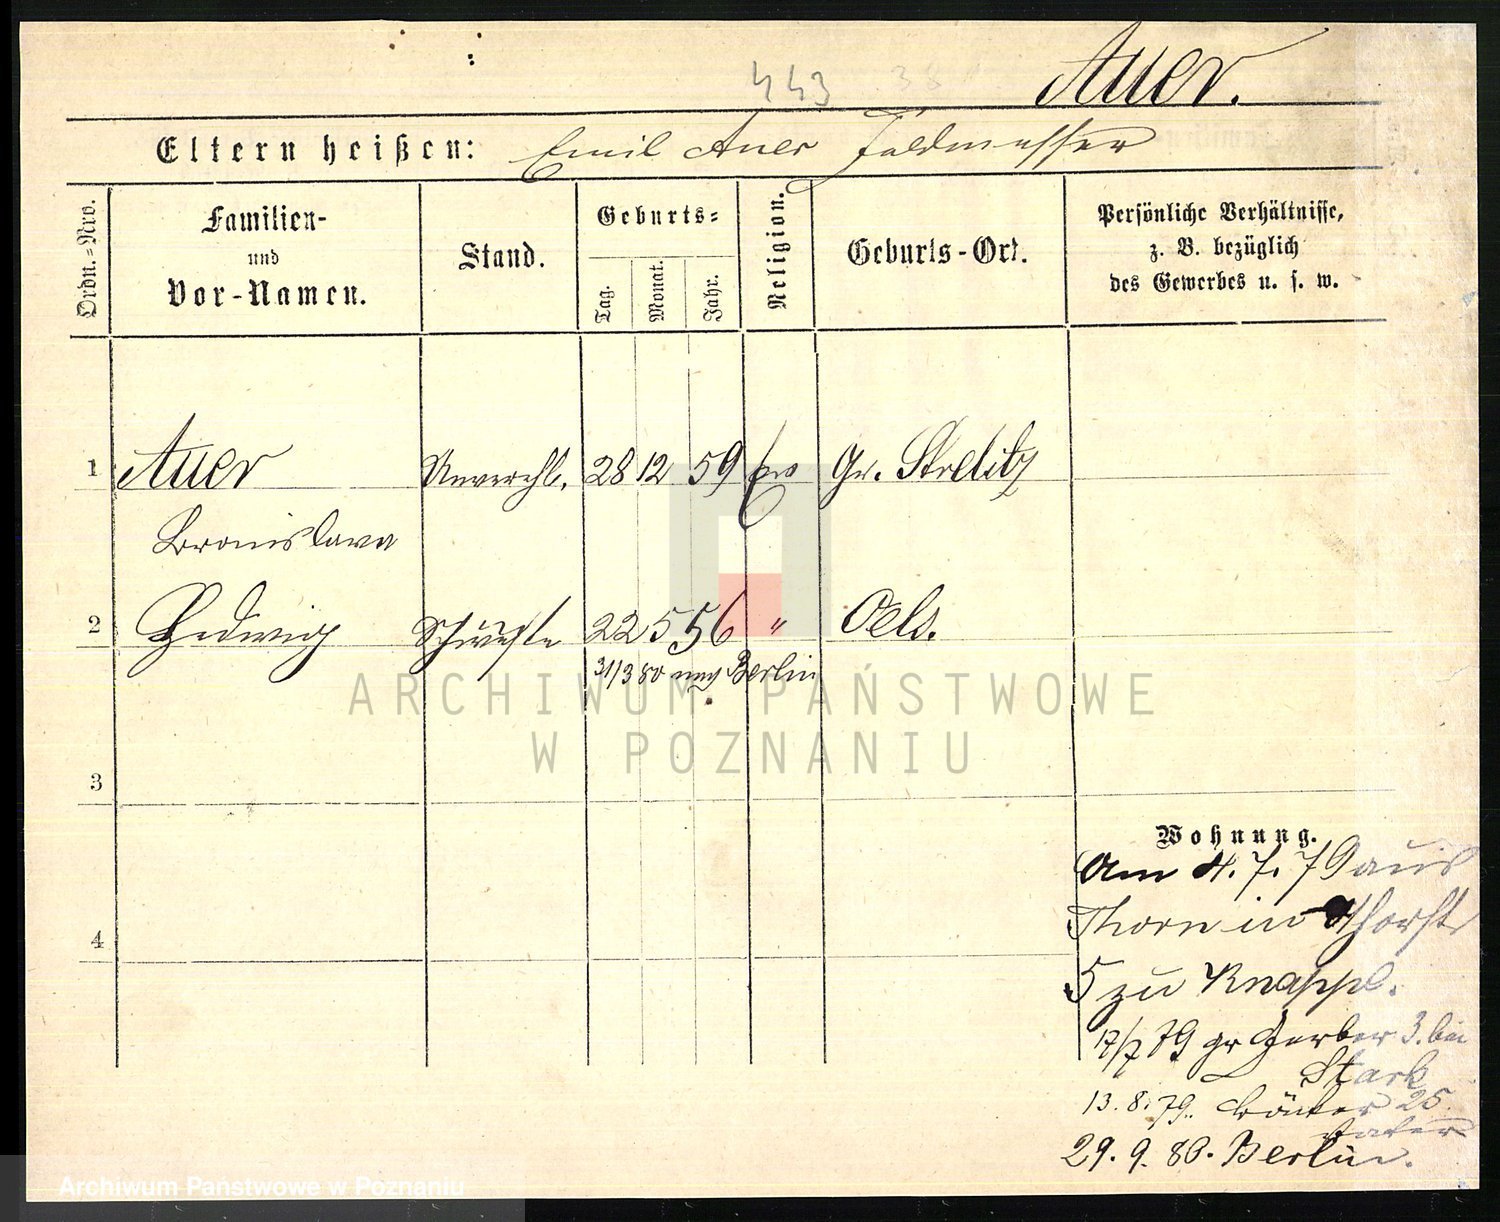 443 38
Auer.
Eltern heißen: Emil Auer Feldmesser
Ordn.-Nro.
Familien-
und
Vor-Namen.
Stand.
Geburts-
Tag.
Monat.
Jahr.
Religion.
Geburts-Ort.
Persönliche Verhältnisse,
z. B. bezüglich
des Gewerbes u. s. w.
1 Auer Unverehl. 28 12 59 ev Gr. Strelitz
Bronislava
2 Hedwig Schweste 22 5 56 " Oels.
31/3 80 nach Berlin
ARCHIWUM PAŃSTWOWE
W POZNANIU
3
Wohnung.
Am 4. 7. 79 aus
Thorn in
4
5 zu Knappe.
17/7 79 gr Gerber 3. bei
Stark
13. 8. 79. 25
Vater
29. 9. 80. Berlin.
Archiwum Państwowe w Poznaniu